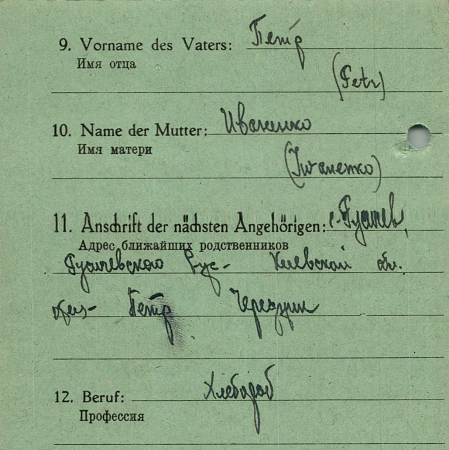 9. Vorname des Vaters: Петр
Имя отца
(Petr)
10. Name der Mutter: Иваненко
Имя матери
(Iwanenko)
11. Anschrift der nächsten Angehörigen: с.
Адрес ближайших родственников
Киевской обл.
Петр
12. Beruf: Хлебороб
Профессия